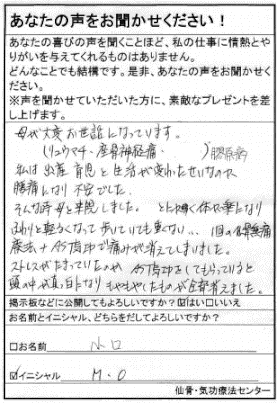 あなたの声をお聞かせください！
あなたの喜びの声を聞くことほど、私の仕事に情熱とや
りがいを与えてくれるものはありません。
どんなことでも結構です。是非、あなたの声をお聞かせく
ださい。
※声を聞かせていただいた方に、素敵なプレゼントを差
し上げます。
母が大変お世話になっています。
（リュウマチ・座骨神経痛・　　）膠原病
私は出産育児と生活が変わったせいなのか
腰痛になり不安でした。
そんな時母と来院しました。とにかく体が楽になり
歩いていても重ない… 1回の
療法＋ で痛みが消えてしまいました。
ストレスがたまっていたのか をしてもらっていると
頭の中が真っ白になりもやもやしたものが全部消えました。
掲示板などに公開してもよろしいですか？☑はい□いいえ
お名前とイニシャル、どちらをだしてよろしいですか？
□お名前
☑イニシャル M・O
仙骨・気功療法センター